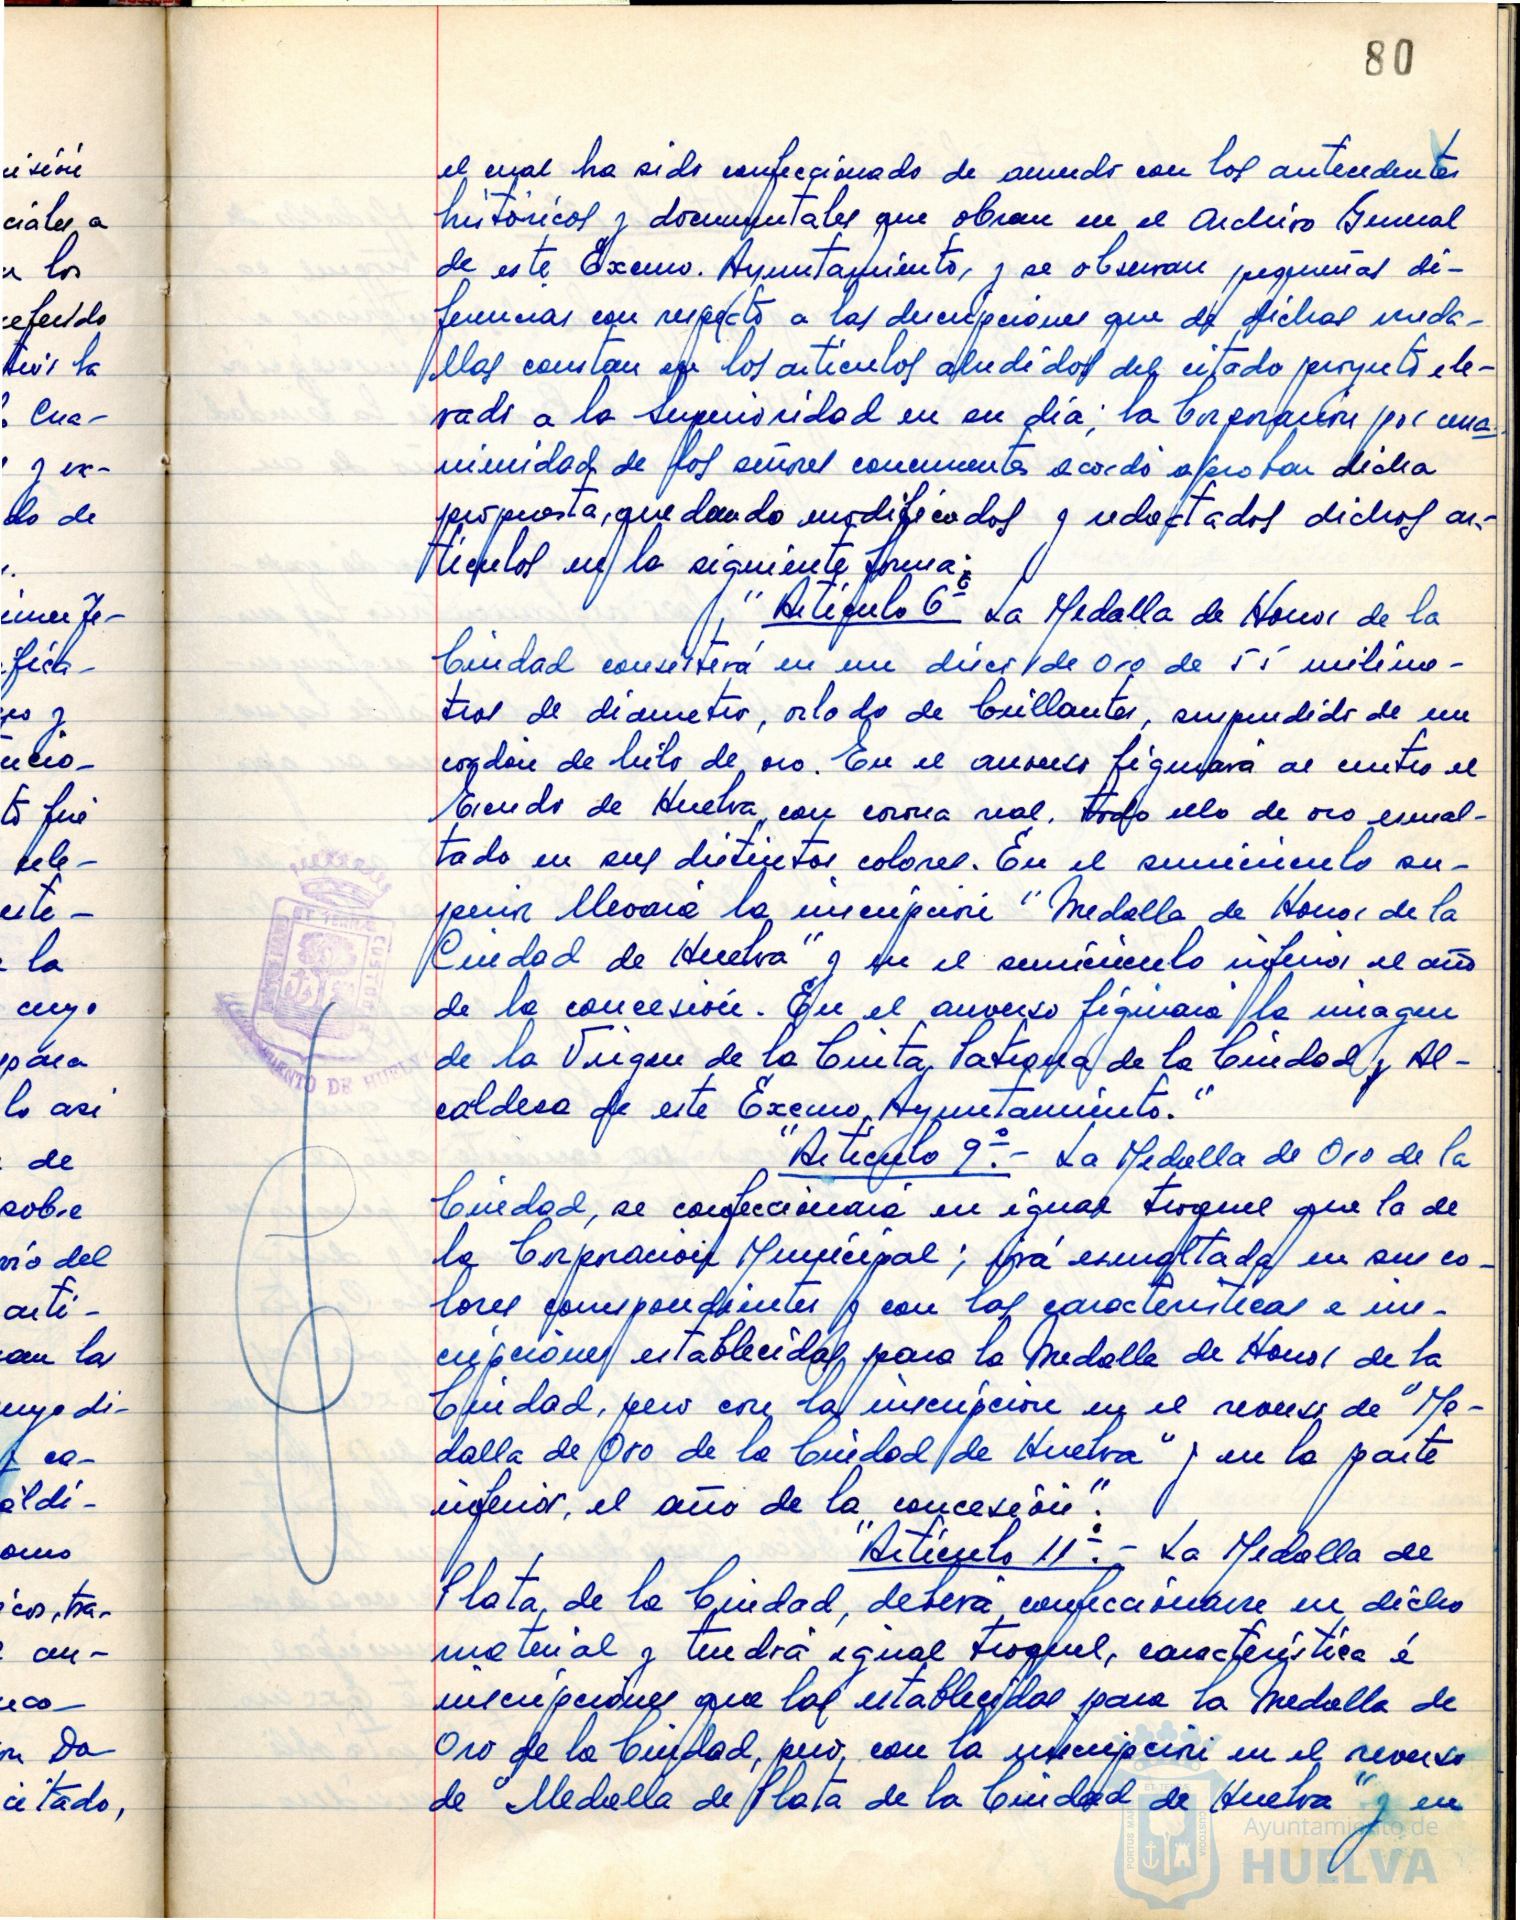 80
el cual ha sido confeccionado de acuerdo con los antecedentes
históricos y documentales que obran en el Archivo General
de este Excmo. Ayuntamiento, y se observan pequeñas di-
ferencias con respecto a las descripciones que de dichas meda-
llas constan en los artículos aludidos del citado proyecto ele-
vado a la Superioridad en su día; la Corporación por una-
nimidad de los señores concurrentes acordó aprobar dicha
propuesta, quedando modificados y redactados dichos ar-
tículos en la siguiente forma:
"Artículo 6º La Medalla de Honor de la
Ciudad consisterá en un disco de oro de 55 milíme-
tros de diametro, orlado de brillantes, suspendido de un
cordón de hilo de oro. En el anverso figurará al centro el
Escudo de Huelva con corona real, todo ello de oro esmal-
tado en sus distintos colores. En el semicirculo su-
perior llevará la inscripción "Medalla de Honor de la
Ciudad de Huelva" y en el semicirculo inferior el año
de la concesión. En el anverso figurará la imagen
de la Virgen de la Cinta, Patrona de la Ciudad y Al-
caldesa de este Excmo. Ayuntamiento."
"Artículo 9º.- La Medalla de Oro de la
Ciudad, se confeccionará en igual troquel que la de
la Corporación Municipal; irá esmaltada en sus co-
lores correspondientes y con las características e ins-
cripciones establecidas para la Medalla de Honor de la
Ciudad, pero con la inscripción en el reverso de "Me-
dalla de Oro de la Ciudad de Huelva" y en la parte
inferior, el año de la concesión".
"Artículo 11º.- La Medalla de
Plata de la Ciudad, deberá confeccionarse en dicho
material y tendrá igual troquel, característica é
inscripciones que las establecidas para la Medalla de
Oro de la Ciudad, pero, con la inscripción en el reverso
de "Medalla de Plata de la Ciudad de Huelva" y en
Ayuntamiento de
HUELVA